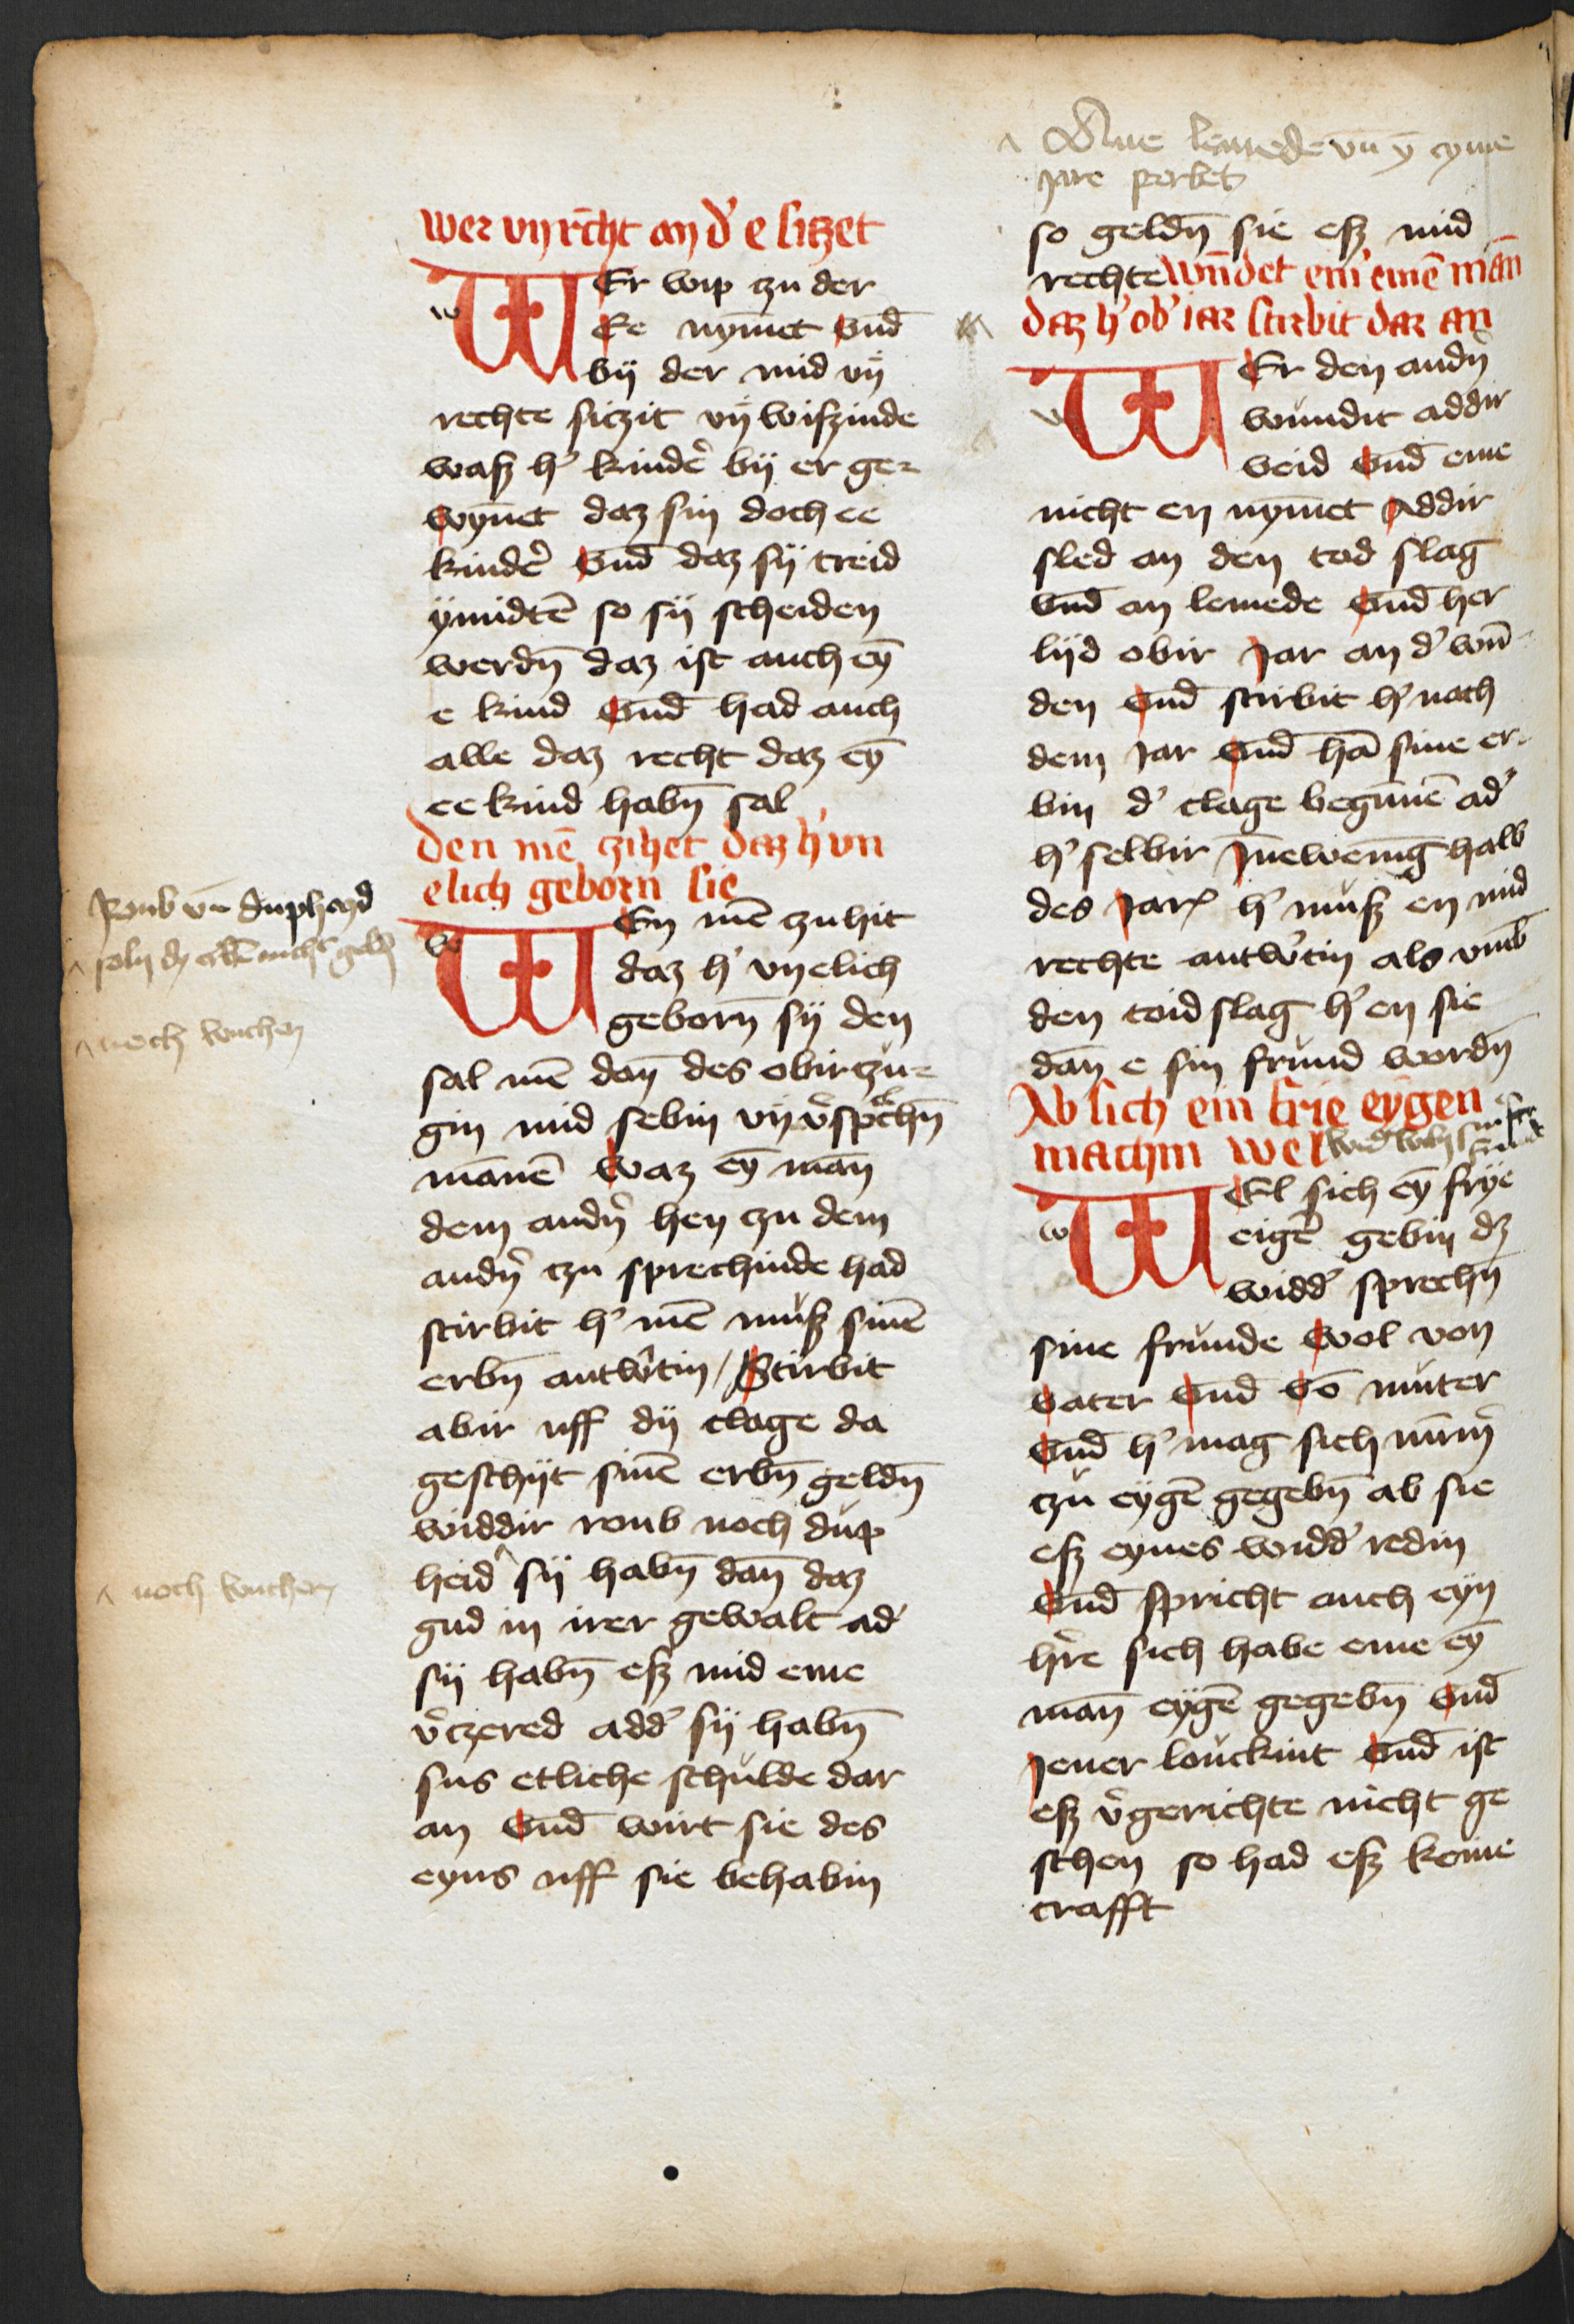 wer vnrecht an d' e sitzet
WEr wip zu der
Ee nym̄et vnd
bij der mid vn
rechte siczit vn̄ wiszinde
wasz h' kindẻ bij er ge-
wyn̄et daz sin doch ee
kindẻ vnd daz sij treid
ynnidtē so sij scheiden
werdn̄ daz ist auch eȳ
e kind vnd had auch
alle daz recht daz eȳ
ee kind habn̄ sal
den mē zihet daz h' vn
elich geborn sie
WEn mē zuhit
daz h' vnelich
geborn̄ sij den
sal mē dan̄ des obirzu-
gin mid sebin vnv̉sprͦchn̄
man̄en waz eȳ man̄
dem andn̉ hen zu dem
andn̉ czu sprechinde had
stirbit h' mē musz sinē
erbn̄ antw̉tin / Stirbit
abir uff dij clage da
geschijt sinē erbn̄ geldn̄
widdir roub noch dup
heid ^ sij habn̄ dan̄ daz
gud in irer gewalt ad'
sij habn̄ esz mid eme
v̉czered add' sij habn̄
sus etliche schulde dar
an vnd wirt sie des
eyns uff sie behabin
Roub vn̄ dupheyd
noch wucher
^ noch wucher
^ Ane lemede vn̄ ȳ eyme
jare
so geldn̄ sie esz mid
rechte wn̄det ein' einē man̄
daz h' ob' iar stirbit dar an
WEr den andn̉
wundit addir
veid vnd eme
nicht en nym̄et Addir
sled an den tod slag
vnd an lemede vnd her
lijd obir Jar an d' wn̄
den vnd stirbit h' noch
dem Jar vnd hā sine er-
bin d' clage begun̄ē ad'
h' selbir Jnewenīg halb
des Jars h' musz en mid
rechte antw̉tin als vmb
den toid slag h' en sie
dan̄ e sin frund wordn̄
Ab sich ein frie eygen
machin wel
WEl sich eȳ frije
eigē gebin dz
widd' sprechn̄
sine frunde wol von
vater vnd vō muter
vnd h' mag sich nūm̉
czu eygē gegebn̄ ab sie
esz eynes widd' redin
vnd spricht auch eyn
h̉re sich habe eme eȳ
man̄ eygē gegebn̄ vnd
Jener louckint vnd ist
esz v̉gerichte nicht ge
schen so had esz keine
crafft